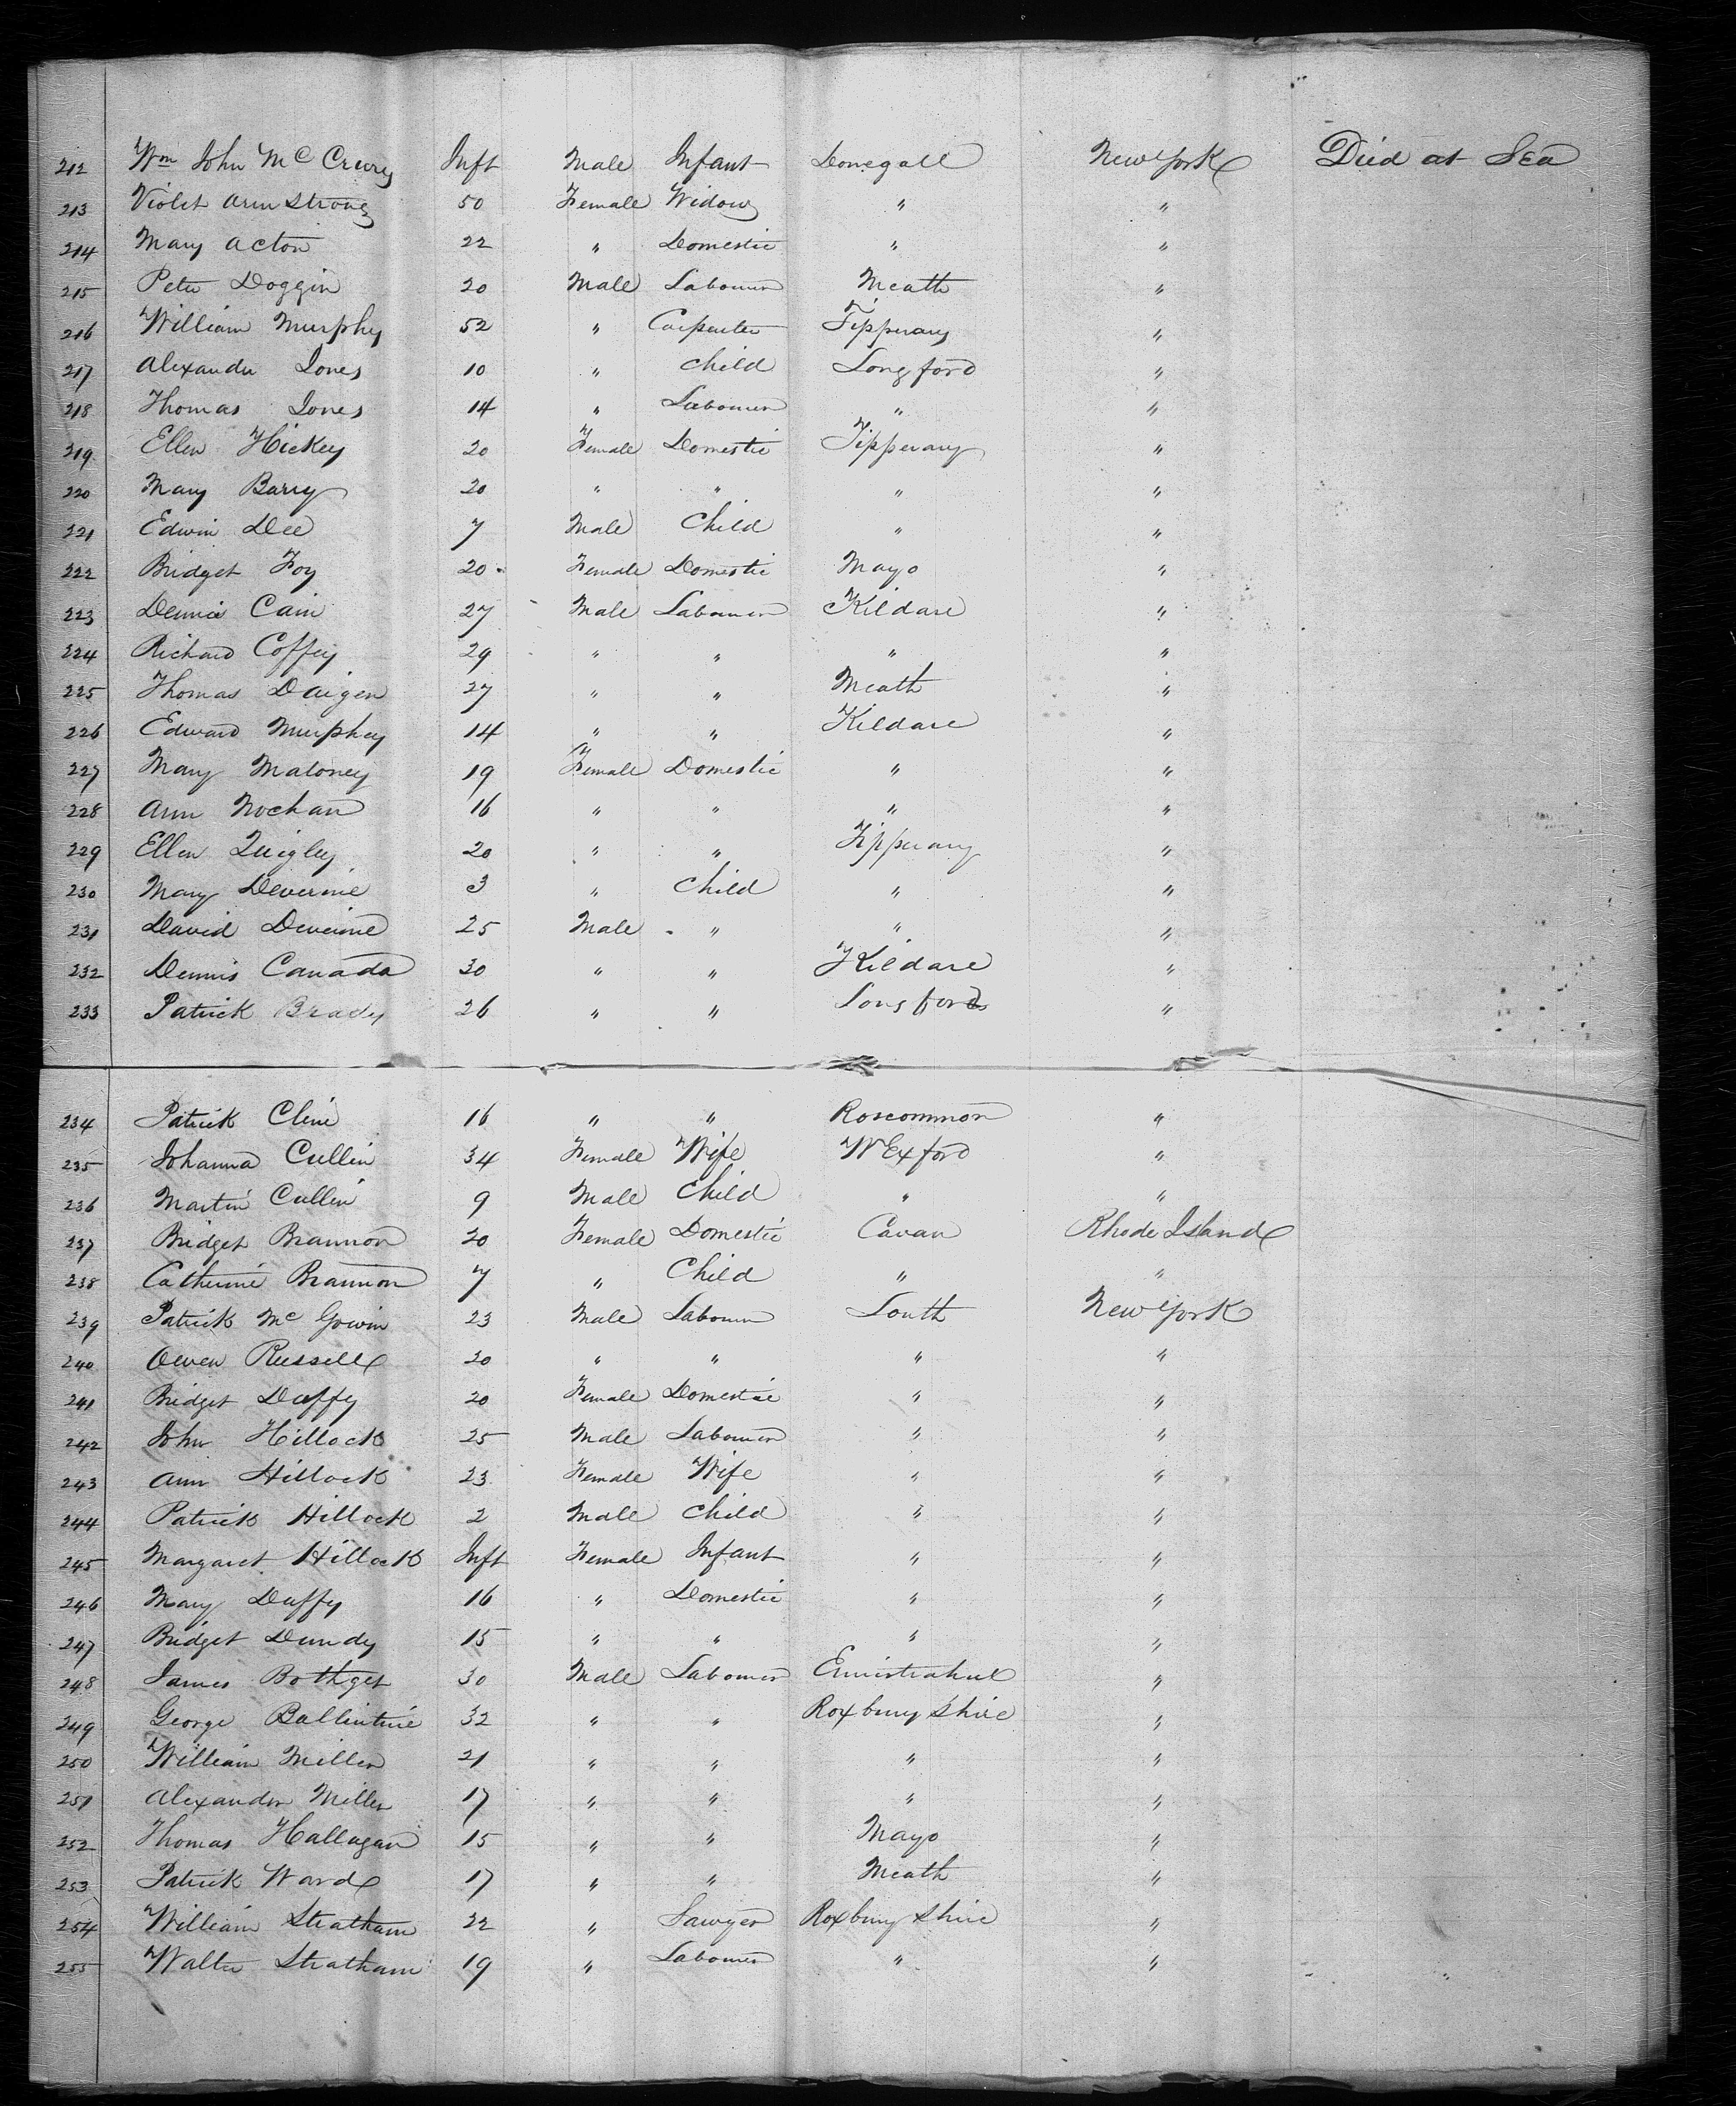 212 Wm John McCreary Inft Male Infant Donegall New York Died at Sea
213 Violet Armstrong 50 Female Widow " "
214 Mary Acton 22 " Domestic " "
215 Peter Doggin 20 Male Labourer Meath "
216 William Murphy 52 " Carpenter Tipperary "
217 Alexander Jones 10 " Child Longford "
218 Thomas Jones 14 " Labourer " "
219 Ellen Hickey 20 Female Domestic Tipperary "
220 Mary Barry 20 " " " "
221 Edwin Dee 7 Male Child " "
222 Bridget Foy 20 Female Domestic Mayo "
223 Dennis Cain 27 Male Labourer Kildare "
224 Richard Coffey 29 " " " "
225 Thomas Daigen 27 " " Meath "
226 Edward Murphey 14 " " Kildare "
227 Mary Maloney 19 Female Domestic " "
228 Ann Nochan 16 " " " "
229 Ellen Quigley 20 " " Tipperary "
230 Mary Deverine 3 " Child " "
231 David Deverine 25 Male " " "
232 Dennis Canada 30 " " Kildare "
233 Patrick Brady 26 " " Longford "
234 Patrick Cline 16 " " Roscommon "
235 Johanna Cullin 34 Female Wife WExford "
236 Martin Cullin 9 Male Child " "
237 Bridget Brannon 20 Female Domestic Cavan Rhode Island
238 Catherine Brannon 7 " Child " "
239 Patrick McGowin 23 Male Labourer Louth New York
240 Owen Russell 20 " " " "
241 Bridget Duffy 20 Female Domestic " "
242 John Hillock 25 Male Labourer " "
243 Ann Hillock 23 Female Wife " "
244 Patrick Hillock 2 Male Child " "
245 Margaret Hillock Inft Female Infant " "
246 Mary Duffy 16 " Domestic " "
247 Bridget Dundy 15 " " " "
248 James Bothget 30 Male Labourer "
249 George Ballintine 32 " " Roxbury Shire "
250 William Miller 21 " " " "
251 Alexander Miller 17 " " " "
252 Thomas Hallagan 15 " " Mayo "
253 Patrick Ward 17 " " Meath "
254 William Stratham 22 " Sawyer Roxbury Shire "
255 Walter Stratham 19 " Labourer " "